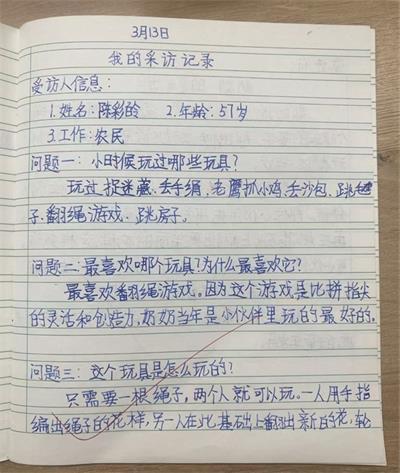 3月13日
我的采访记录
受访人信息：
1.姓名：陈彩龄 2.年龄：57岁
3.工作：农民
问题一：小时候玩过哪些玩具？
玩过捉迷藏、丢手绢、老鹰抓小鸡、丢沙包、跳毽
子、翻绳游戏、跳房子。
问题二：最喜欢哪个玩具？为什么最喜欢它？
最喜欢翻绳游戏。因为这个游戏是比拼指尖
的灵活和创造力，奶奶当年是小伙伴里玩的最好的。
问题三：这个玩具是怎么玩的？
只需要一根绳子，两个人就可以玩。一人用手指
编出绳子的花样，另一人在此基础上翻出新的花，轮